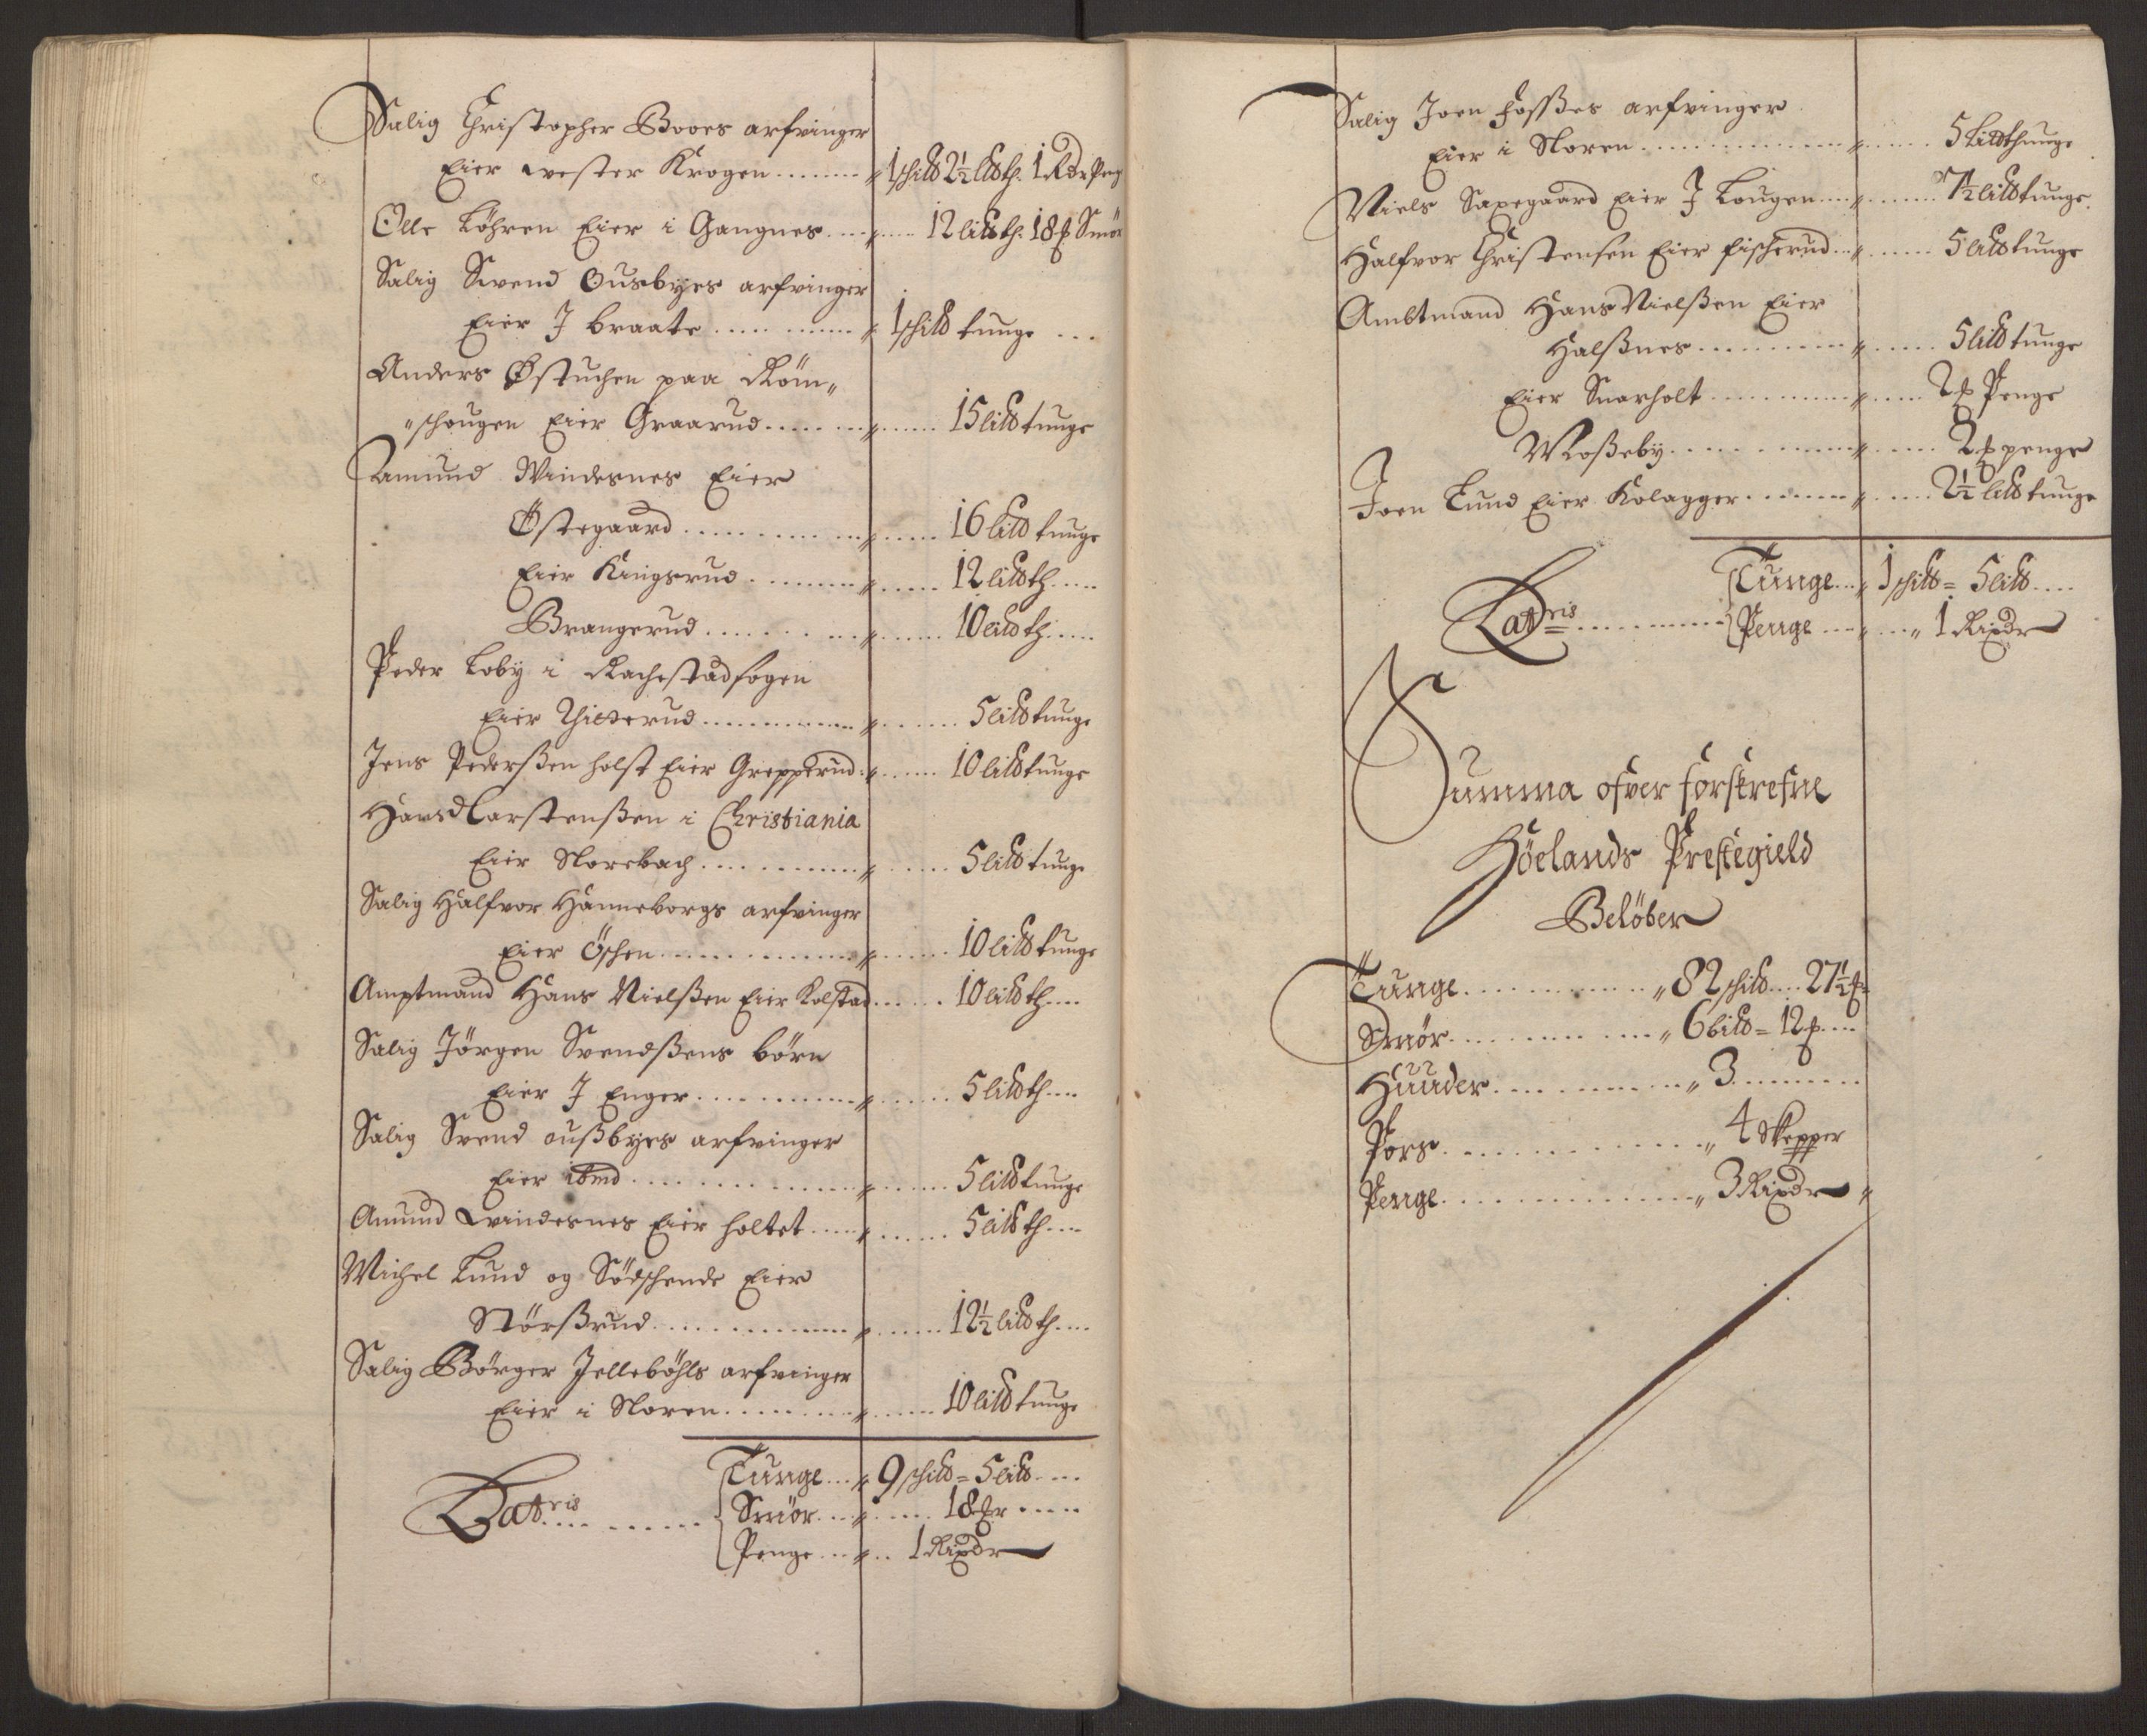 Salig Christopher Booes arfvinger
Eier wester Krogen ........ " 1 schild 2½ lild th. 1 Rdr Peng
Olle Löhren Eier i Gangnes .... " .... 12 lild th. 18 ℔ Smör
Salig Svend Ousbyes arfvinger
Eier J braate ............ " 1 schild tunge ...
Anders Østuchen paa Röm„
„schougen Eier Graarud ........ " ...... 15 lild tunge
Amund Windesnes Eier
Östegaard ............ " ..... 16 lild tunge
Eier Kringsrud .......... " ...... 12 lild th .....
Brangerud ............ " ...... 10 lild th .....
Peder Loby i Rachestad sogen
Eier ........... " ....... 5 lild tunge
Jens Pederßen holst Eier Grepperud " ...... 10 lild tunge
Hans Carstenßen i Christiania
Eier Norebach ........... " ...... 5 lild tunge
Salig Halfvor Hanneborgs arfvinger
Eier Öschen .............. " ...... 10 lild tunge
Amptmand Hans Nielßen Eier Kolstad ...... 10 lild th ....
Salig Jörgen Svendßens börn
Eier J Enger ........... " ...... 5 lild th ....
Salig Svend oußbyes arfvinger
Eier ibmd ............... " ...... 5 lild tunge
Amund windesnes Eier holtet ..... " ...... 5 lild th ....
Michel Lund og Södschende Eier
Störßrud .............. " ...... 12½ lild th ....
Salig Börger Jelleböhls arfvinger
Eier i Noren .......... " ...... 10 lild tunge
Tunge ... " 9 schild = 5 lild ....
Latris ........ Smör .... " ..... 18 ℔r .....
Penge ... " .. 1 Rixdr
Salig Joen Foßßes arfvinger
Eier i Noren .............. " ...... 5 Lild thunge
Niels Saxegaard Eier J Lougen .... " ...... 7½ lild tunge
Halfvor Christensen Eier fischerud .. " ...... 5 lild tunge
Ambtmand Hans Nielßen Eier
Halßnes ........... " ..... 5 lild tunge
Eier Snarholt ........... " ..... 2 ℔ Penge
Moßeby ............. " ..... 2 ℔ penge
Joen Lund Eier Kolagger ........ " ..... 2½ lild tunge
Tunge ... " 1 schild = 5 lild ....
Latris ............ Penge .... " .... " 1 Rixdr
Summa ofver forskrefne
Höelands Prestegield
Belöber
Tunge .............. " 82 schild .... 27½ ℔
Smör ............... " 6 bild = 12 ℔ ....
Huuder ............ " 3 ........
Pors ............... " 4 Skepper
Penge .............. " 3 Rixdr "